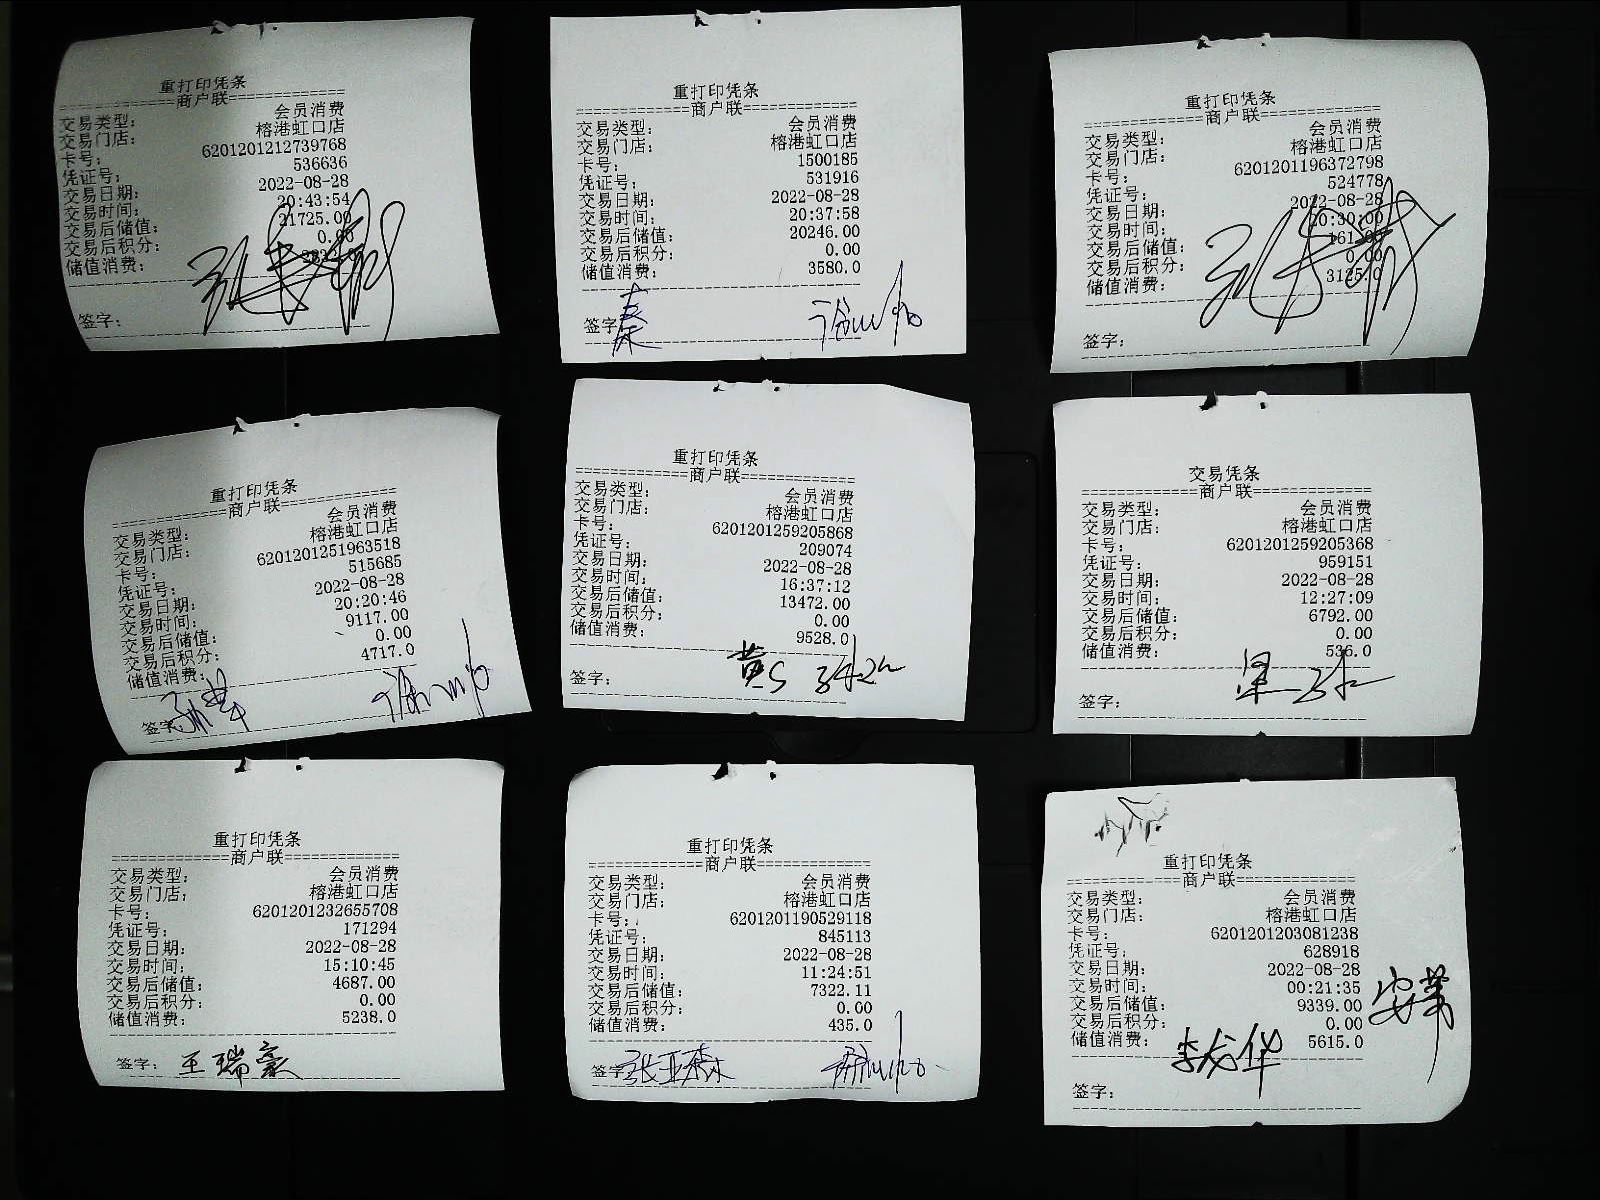 重打印凭条
============商户联============
交易类型： 会员消费
交易门店： 榕港虹口店
卡号： 6201201212739768
凭证号： 536636
交易日期： 2022-08-28
交易时间： 20:43:54
交易后储值： 21725.00
交易后积分： 0.00
储值消费：
签字：
重打印凭条
============商户联============
交易类型： 会员消费
交易门店： 榕港虹口店
卡号： 1500185
凭证号： 531916
交易日期： 2022-08-28
交易时间： 20:37:58
交易后储值： 20246.00
交易后积分： 0.00
储值消费： 3580.0
签字 秦
重打印凭条
============商户联============
交易类型： 会员消费
交易门店： 榕港虹口店
卡号： 6201201196372798
凭证号： 524778
交易日期： 2022-08-28
交易时间： 20:30:00
交易后储值： 161.00
交易后积分： 0.00
储值消费： 3125.0
签字：
重打印凭条
============商户联============
交易类型： 会员消费
交易门店： 榕港虹口店
卡号： 6201201251963518
凭证号： 515685
交易日期： 2022-08-28
交易时间： 20:20:46
交易后储值： 9117.00
交易后积分： 0.00
储值消费： 4717.0
签字
重打印凭条
============商户联============
交易类型： 会员消费
交易门店： 榕港虹口店
卡号： 6201201259205868
凭证号： 209074
交易日期： 2022-08-28
交易时间： 16:37:12
交易后储值： 13472.00
交易后积分： 0.00
储值消费： 9528.0
签字： 黄S
交易凭条
============商户联============
交易类型： 会员消费
交易门店： 榕港虹口店
卡号： 6201201259205368
凭证号： 959151
交易日期： 2022-08-28
交易时间： 12:27:09
交易后储值： 6792.00
交易后积分： 0.00
储值消费： 536.0
签字：
重打印凭条
============商户联============
交易类型： 会员消费
交易门店： 榕港虹口店
卡号： 6201201232655708
凭证号： 171294
交易日期： 2022-08-28
交易时间： 15:10:45
交易后储值： 4687.00
交易后积分： 0.00
储值消费： 5238.0
签字： 王瑞豪
重打印凭条
============商户联============
交易类型： 会员消费
交易门店： 榕港虹口店
卡号： 6201201190529118
凭证号： 845113
交易日期： 2022-08-28
交易时间： 11:24:51
交易后储值： 7322.11
交易后积分： 0.00
储值消费： 435.0
签字 张亚森
重打印凭条
============商户联============
交易类型： 会员消费
交易门店： 榕港虹口店
卡号： 6201201203081238
凭证号： 628918
交易日期： 2022-08-28
交易时间： 00:21:35
交易后储值： 9339.00
交易后积分： 0.00
储值消费： 5615.0
签字：